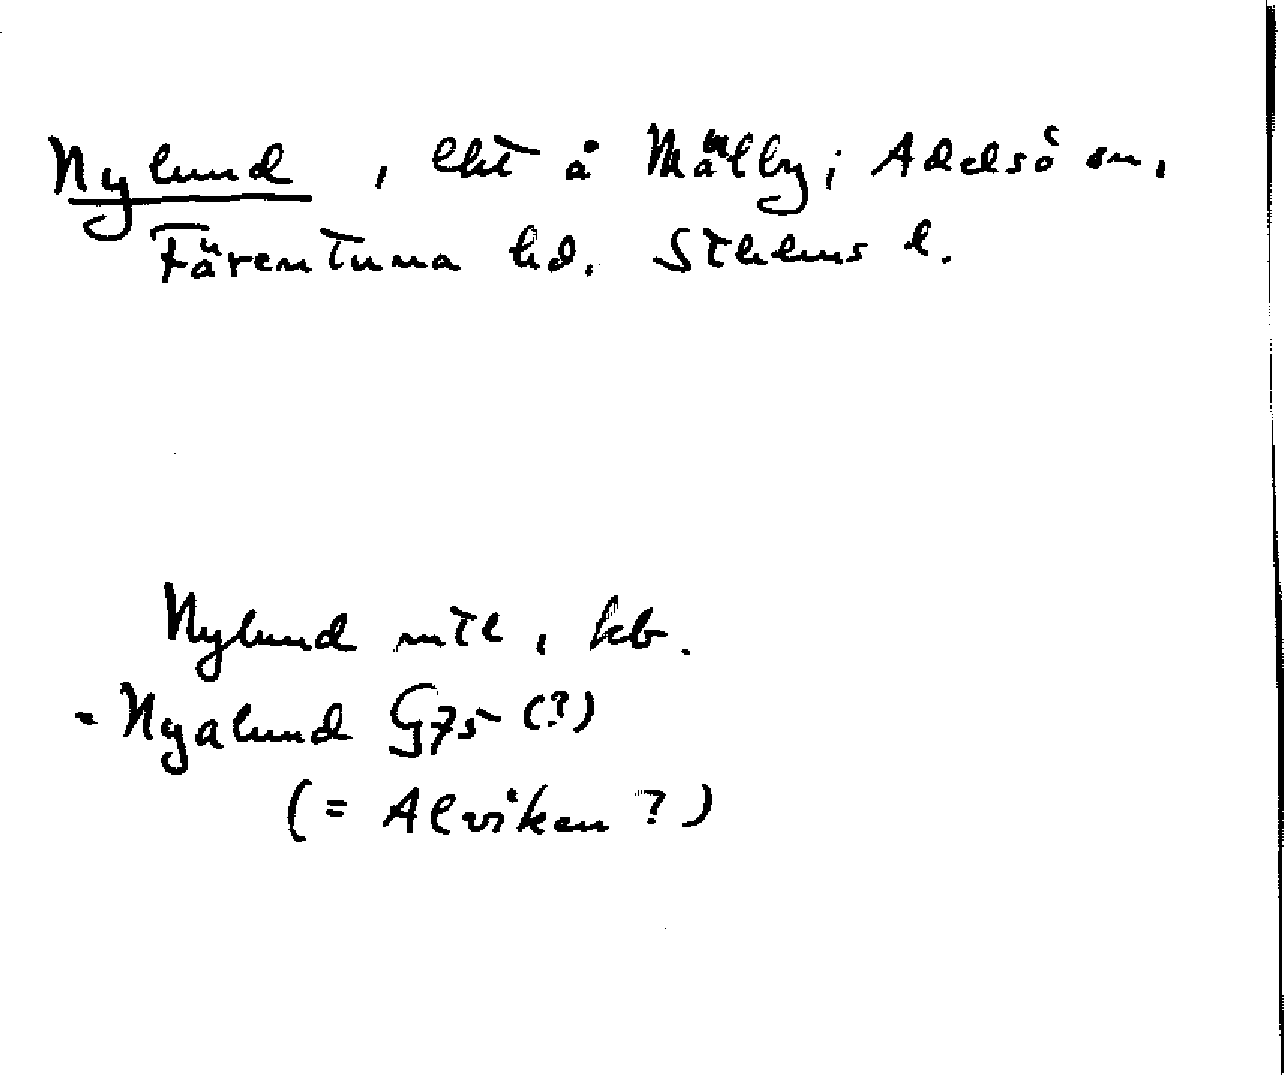 Nylund, lht å Mälby, Adelsö sn,
Färentuna hd. Sthlms l.
Nylund mtl, kb.
- Nyalund G75 (?)
(= Alviken ?)